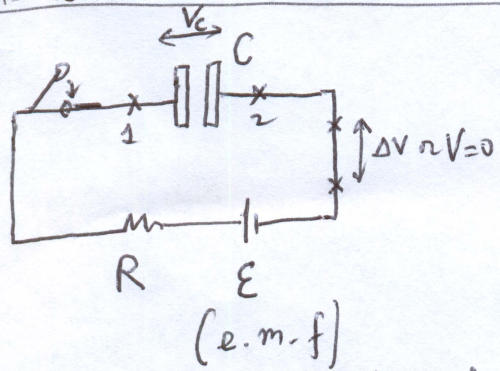 Vc
C
1
2
ΔV ~ V=0
R
ε
(e.m.f)